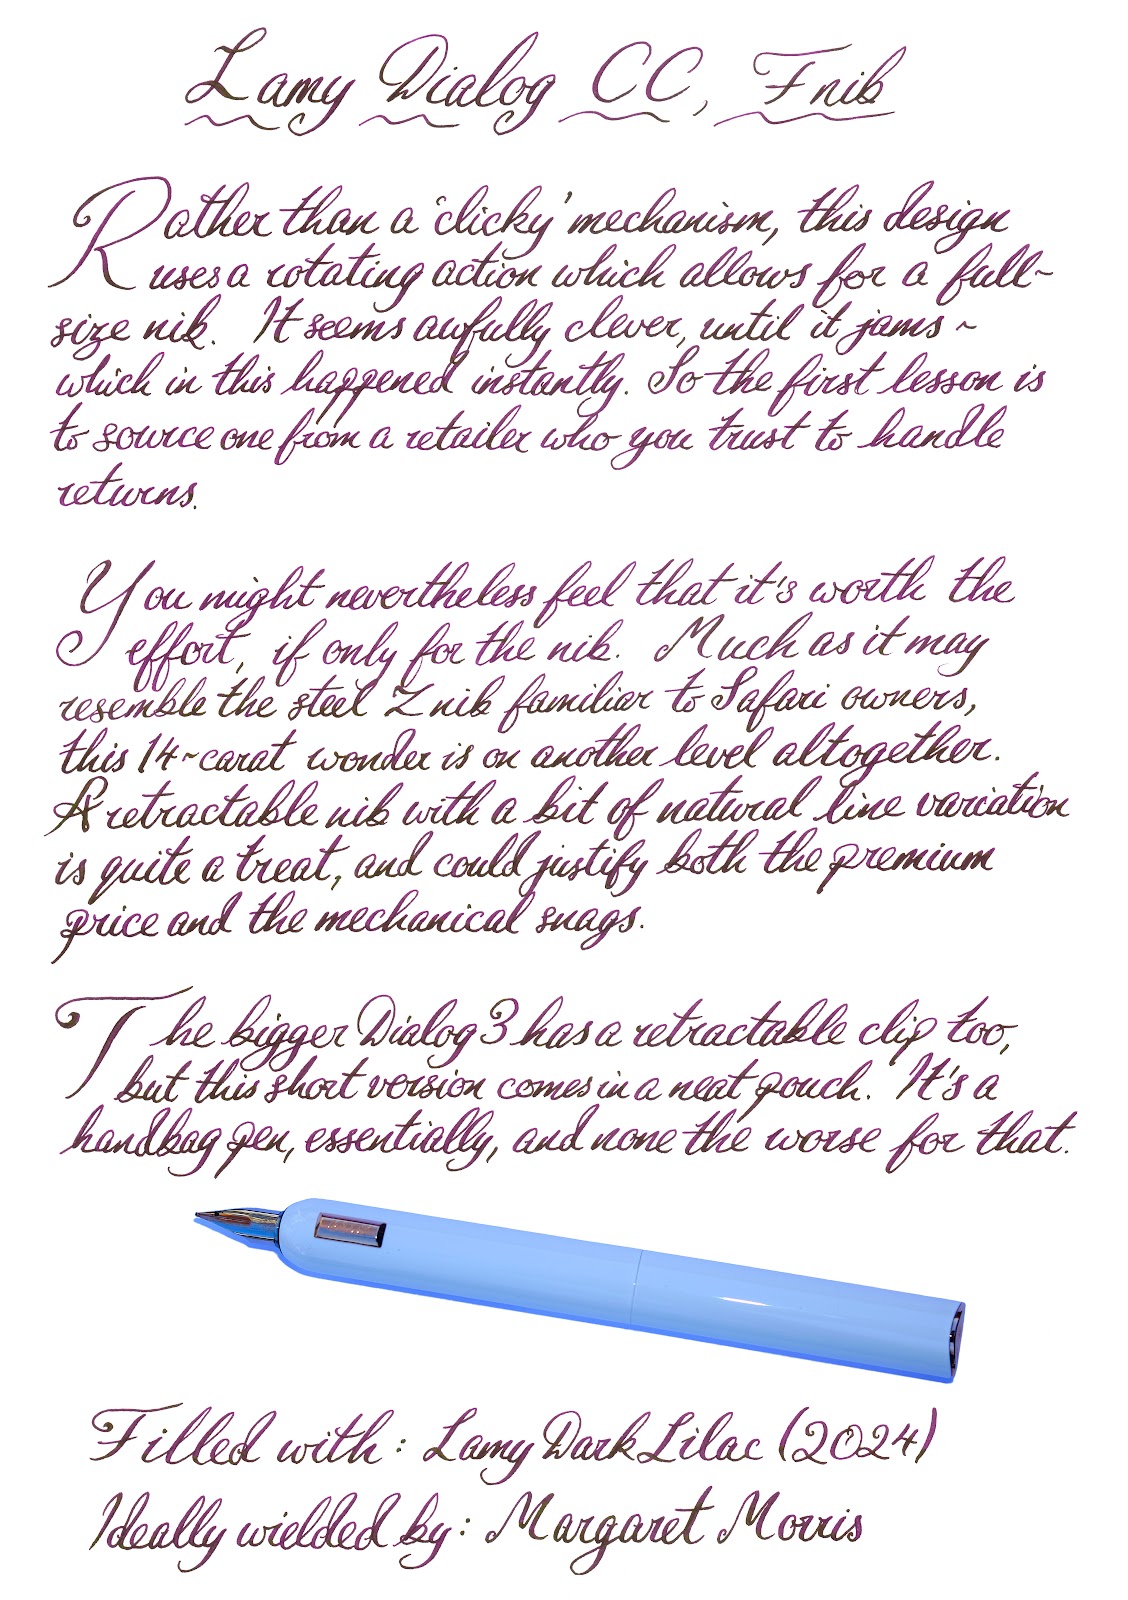 Lamy Dialog CC, F nib
Rather than a 'clicky' mechanism, this design
uses a rotating action which allows for a full-
size nib. It seems awfully clever, until it jams ~
which in this happened instantly. So the first lesson is
to source one from a retailer who you trust to handle
returns.
You might nevertheless feel that it's worth the
effort, if only for the nib. Much as it may
resemble the steel Z nib familiar to Safari owners,
this 14~carat wonder is on another level altogether.
A retractable nib with a bit of natural line variation
is quite a treat, and could justify both the premium
price and the mechanical snags.
The bigger Dialog 3 has a retractable clip too,
but this short version comes in a neat pouch. It's a
handbag pen, essentially, and none the worse for that.
Filled with: Lamy Dark Lilac (2024)
Ideally wielded by: Margaret Morris